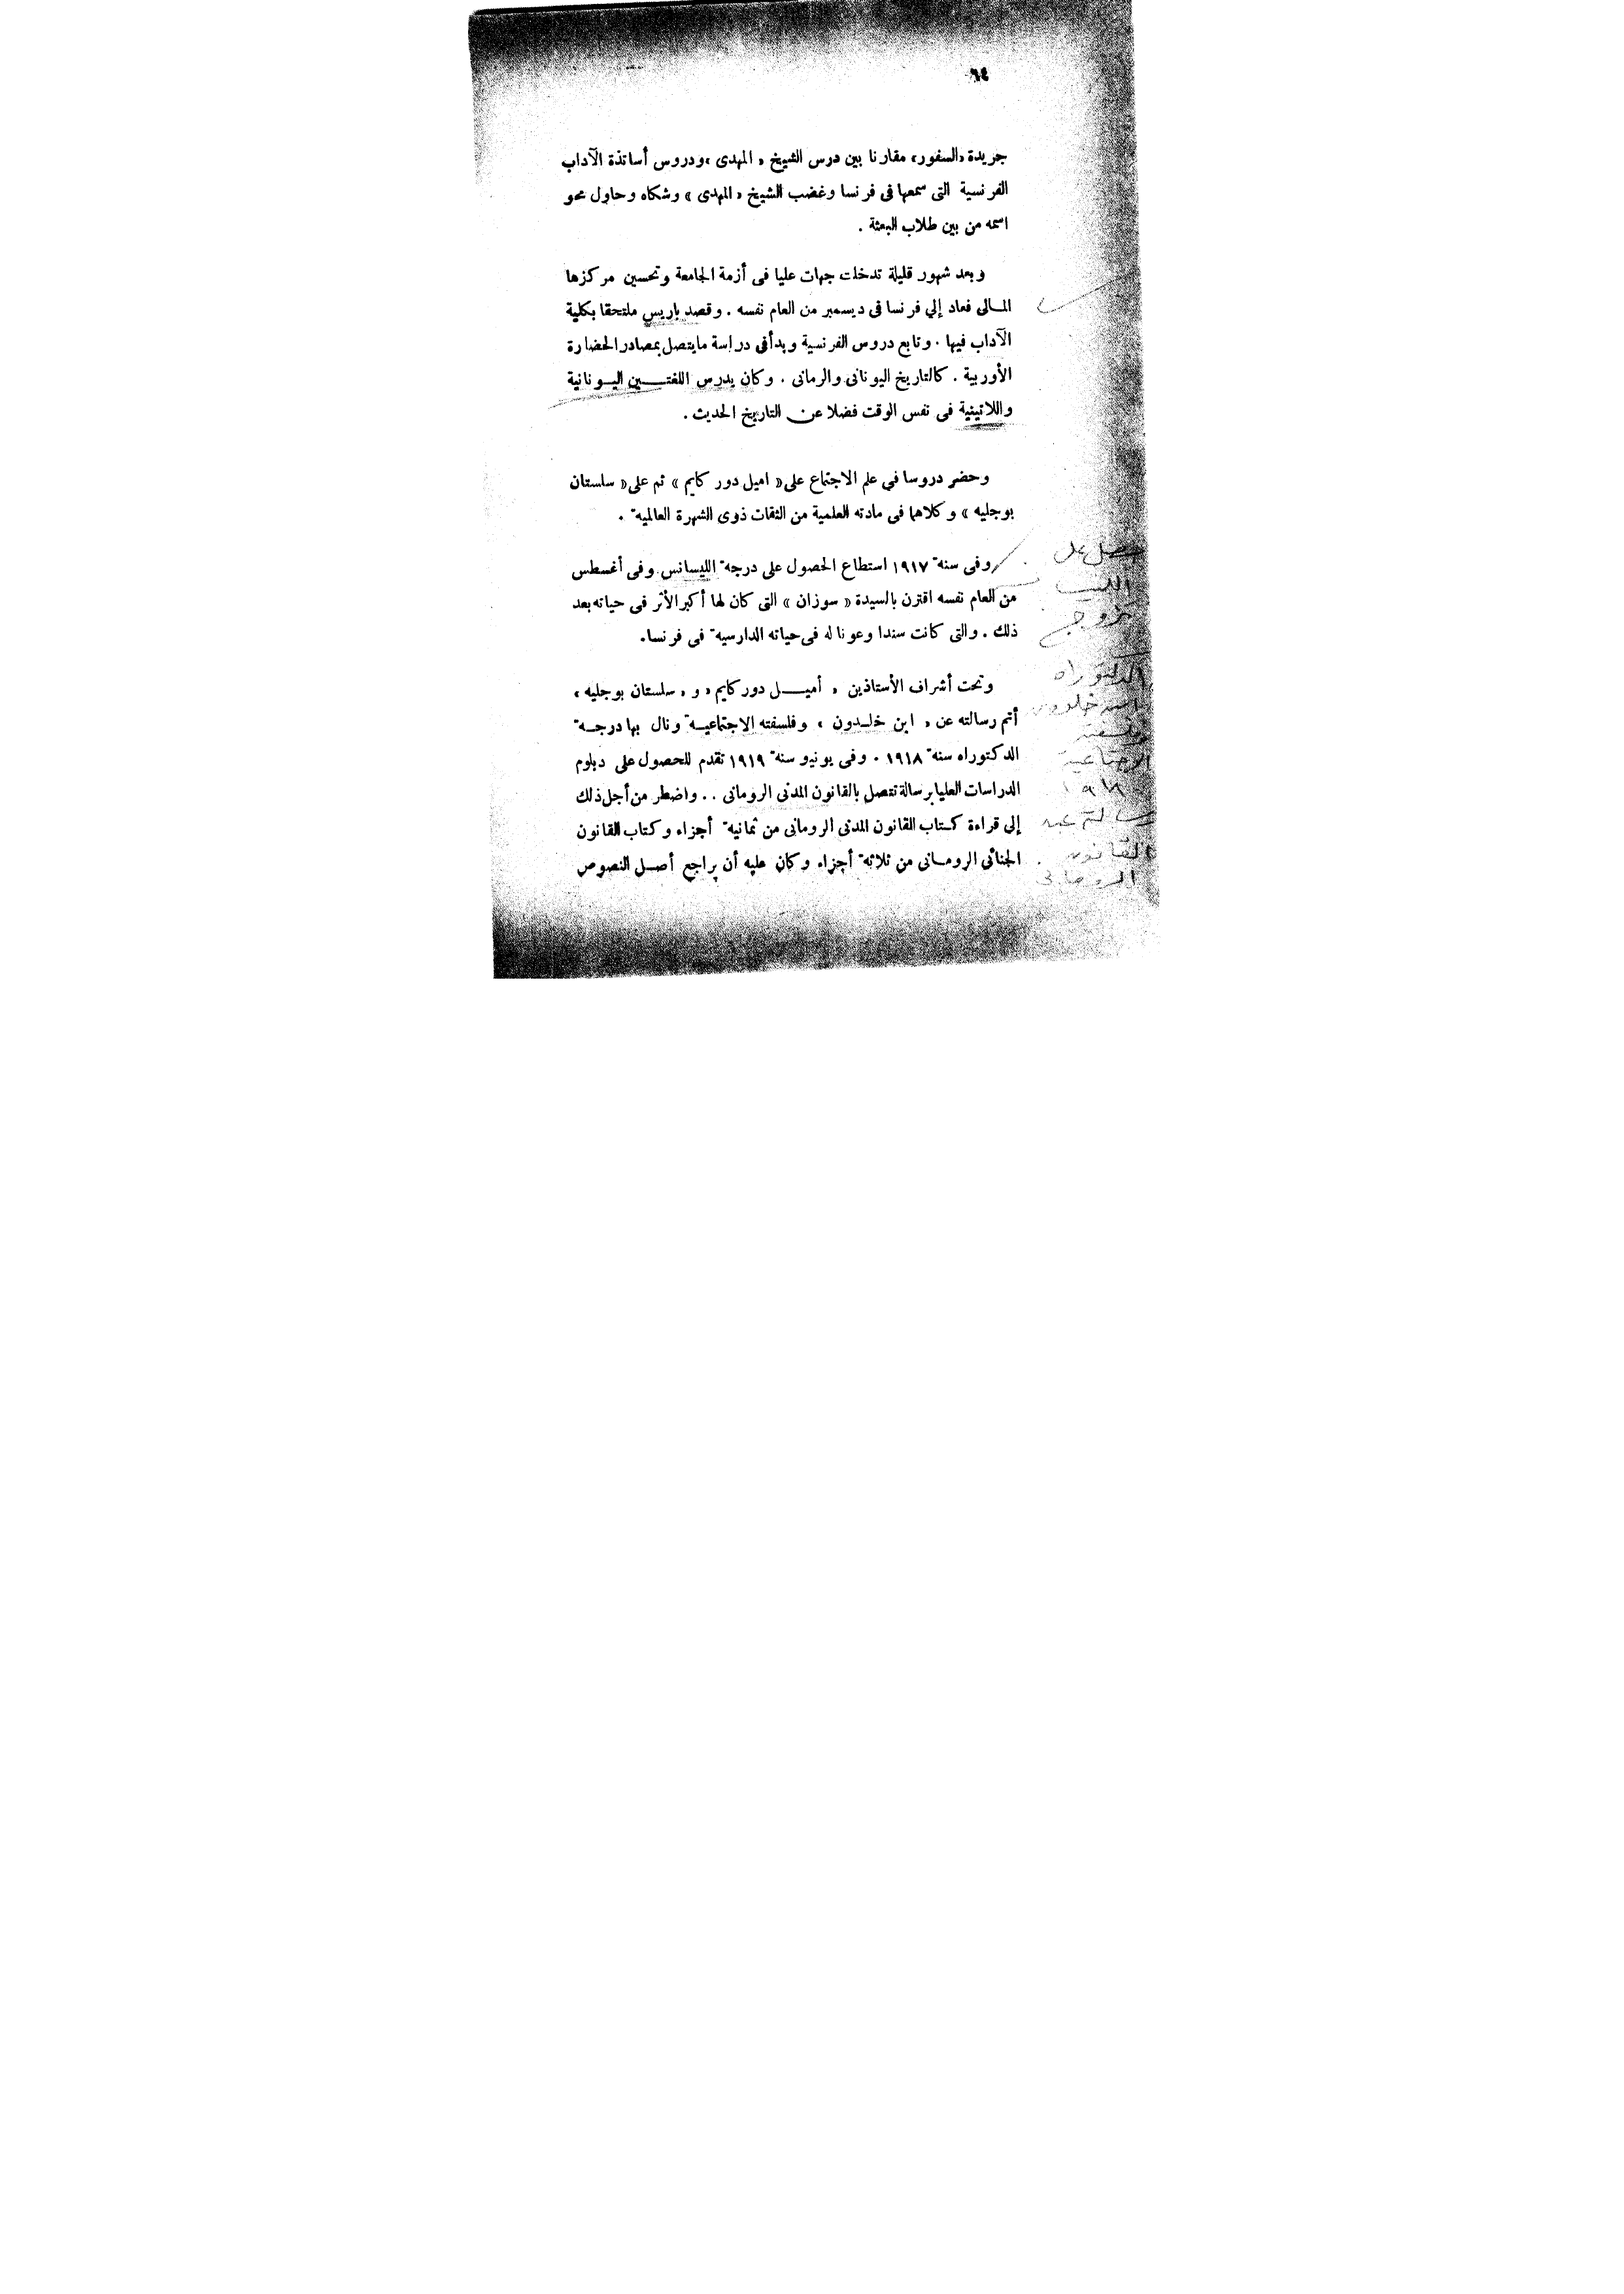 ٦٤
جريدة «السفور» مقارنا بين درس الشيخ « المهدى » ودروس أساتذة الآداب
الفرنسية التى سمعها فى فرنسا وغضب الشيخ « المهدى » وشكاه وحاول محو
اسمه من بين طلاب البعثة .
وبعد شهور قليلة تدخلت جهات عليا فى أزمة الجامعة وتحسين مركزها
المالى فعاد إلي فرنسا فى ديسمبر من العام نفسه . وقصد باريس ملتحقا بكلية
الآداب فيها . وتابع دروس الفرنسية وبدأ فى دراسة مايتصل بمصادر الحضارة
الأوربية . كالتاريخ اليونانى والرمانى . وكان يدرس اللغتين اليونانية
واللاتينية فى نفس الوقت فضلا عن التاريخ الحديث .
وحضر دروسا في علم الاجتماع على « اميل دور كايم » ثم على « سلستان
بوجليه » وكلاهما فى مادته العلمية من الثقات ذوى الشهرة العالمية .
وفى سنة ١٩١٧ استطاع الحصول على درجة الليسانس وفى أغسطس
من العام نفسه اقترن بالسيدة « سوزان » التى كان لها أكبر الأثر فى حياته بعد
ذلك . والتى كانت سندا وعونا له فى حياته الدارسية فى فرنسا.
وتحت أشراف الأستاذين « أميل دور كايم » و « سلستان بوجليه »
أتم رسالته عن « ابن خلدون » وفلسفته الاجتماعية ونال بها درجة
الدكتوراه سنة ١٩١٨ . وفى يونيو سنة ١٩١٩ تقدم للحصول على دبلوم
الدراسات العليا برسالة تتصل بالقانون المدنى الرومانى . . واضطر من أجل ذلك
إلى قراءة كتاب القانون المدنى الرومانى من ثمانية أجزاء وكتاب القانون
الجنائى الرومانى من ثلاثة أجزاء وكان عليه أن يراجع أصل النصوص
حصل على
تزوج
الدكتوراه
ابن خلدون
وفلسفته
الاجتماعية
١٩١٨
رسالته عن
القانون
الرومانى